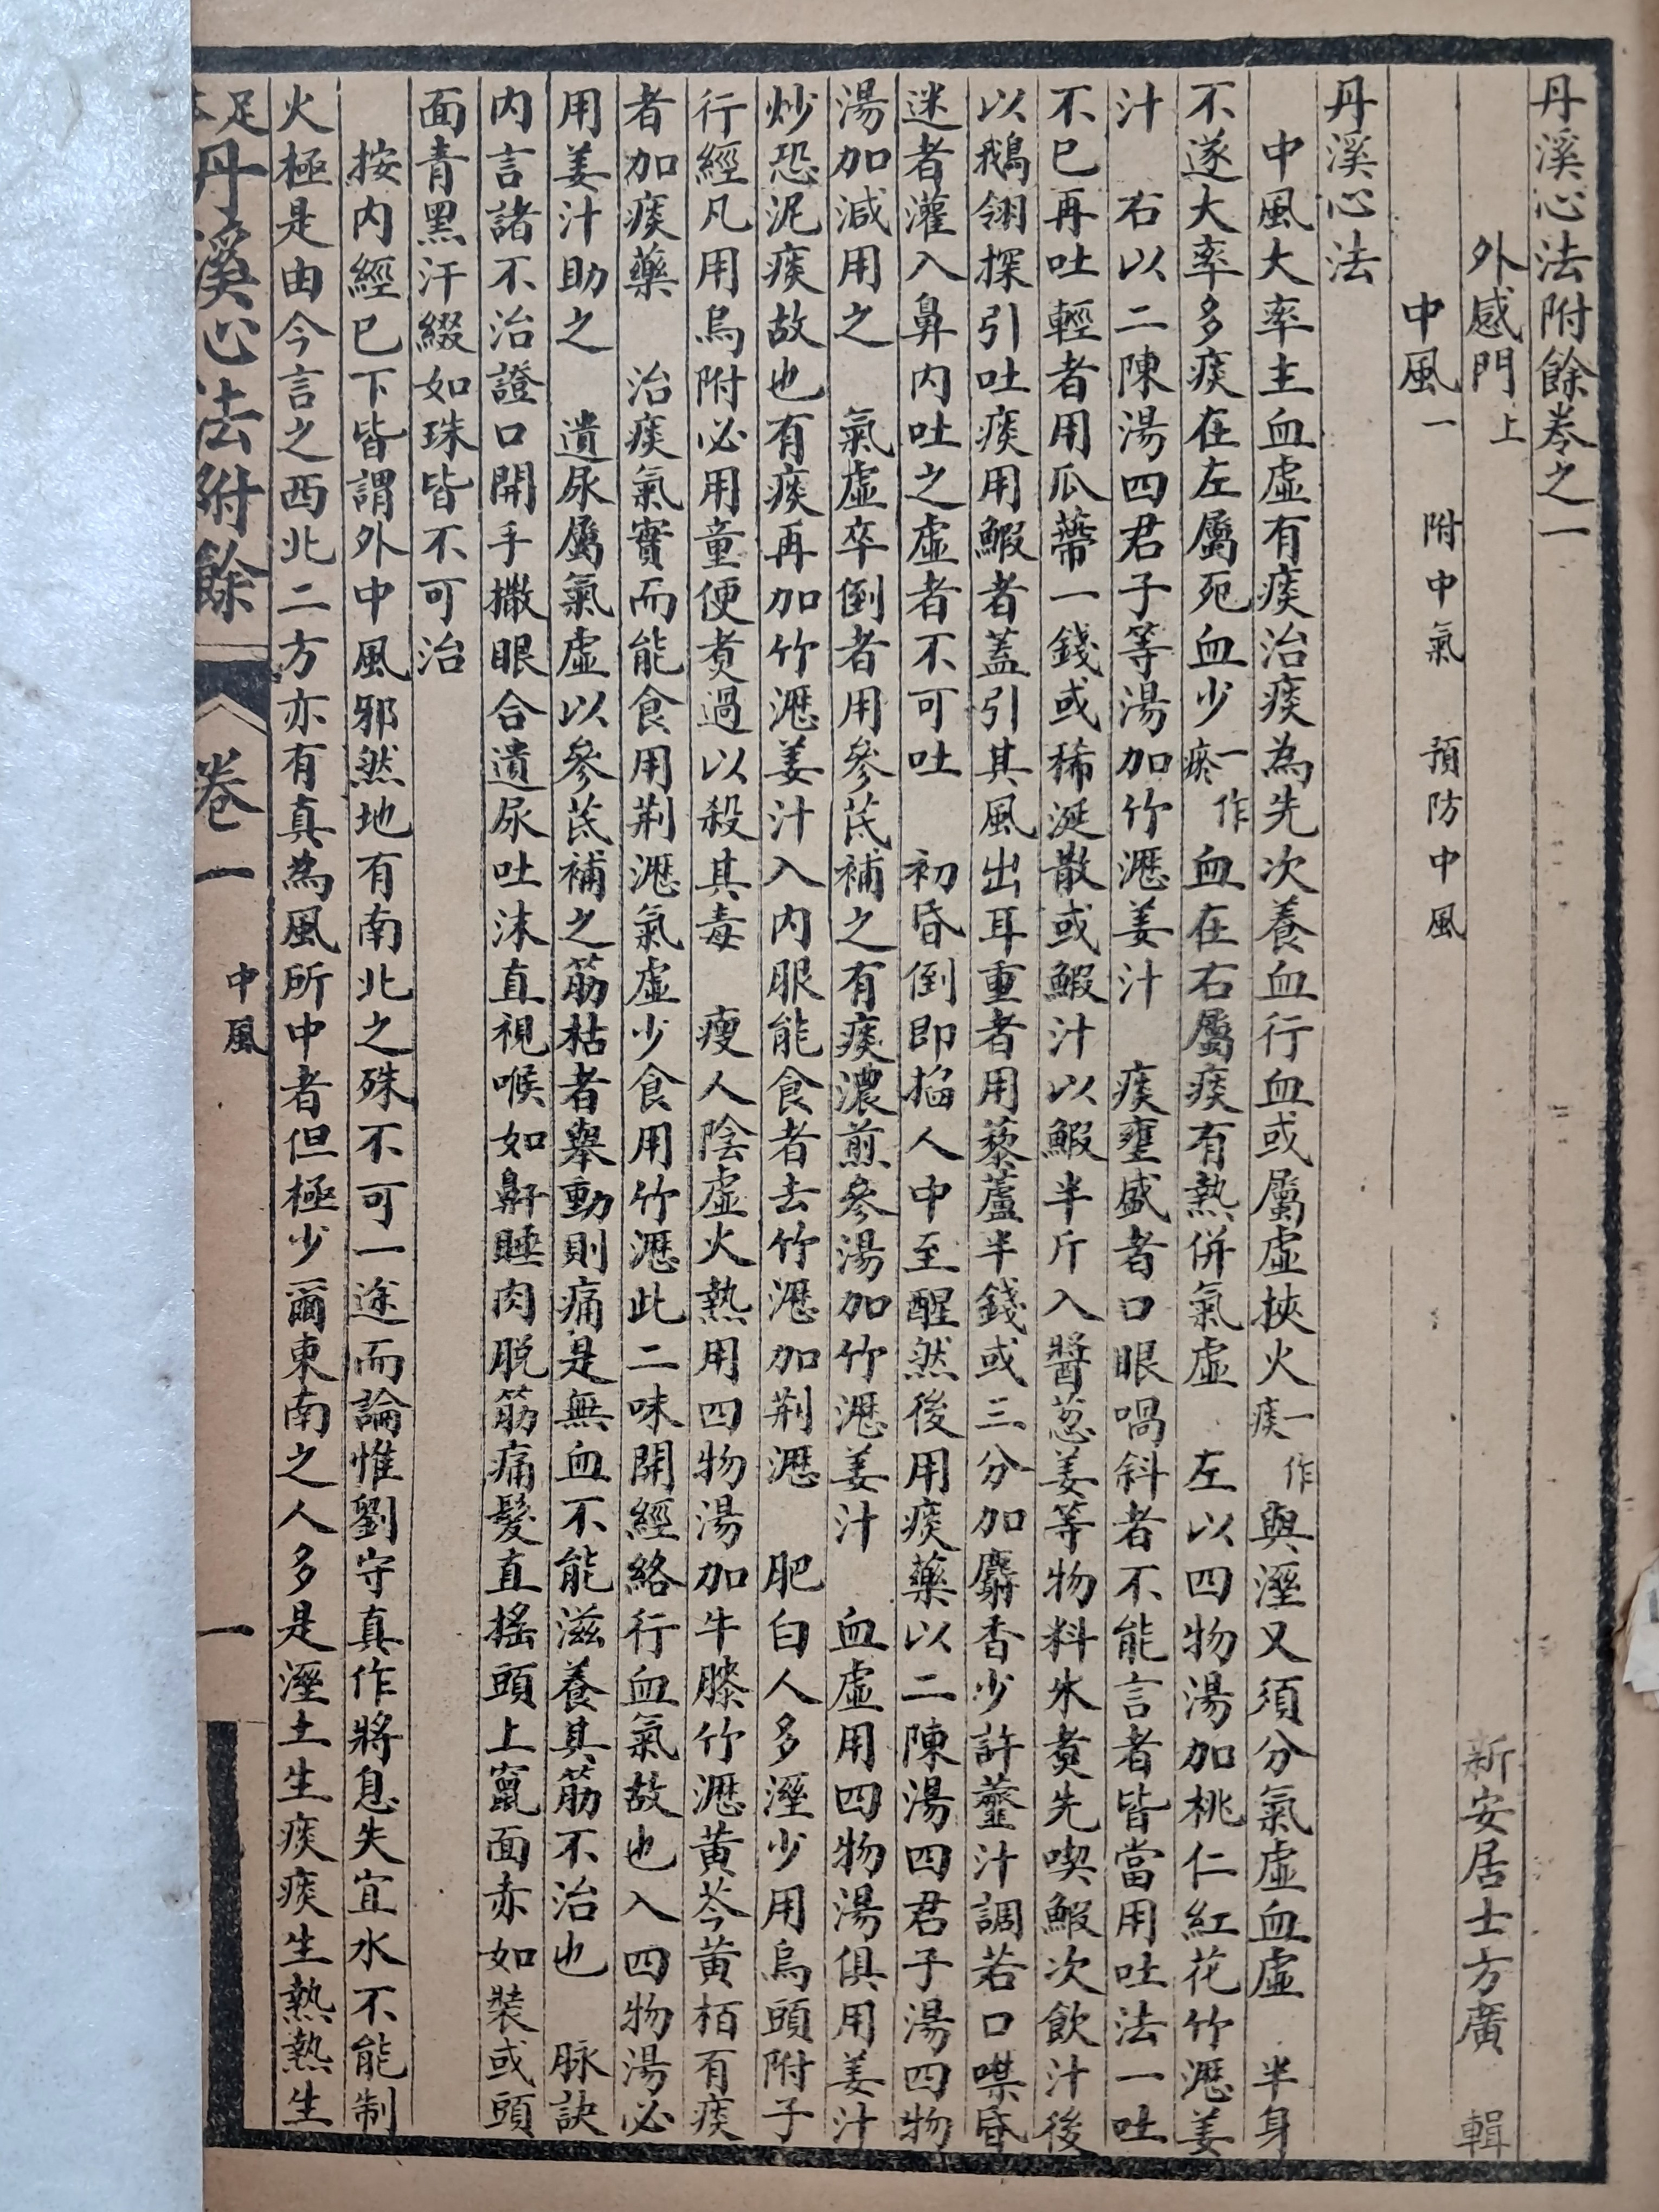 丹溪心法附餘卷之一
外感門上 新安居士方廣 輯
中風一 附中氣 預防中風
丹溪心法
中風大率主血虛有痰治痰為先次養血行血或屬虛挾火一作痰與溼又須分氣虛血虛 半身
不遂大率多痰在左屬死血少一作瘀血在右屬痰有熱併氣虛 左以四物湯加桃仁紅花竹瀝姜
汁 右以二陳湯四君子等湯加竹瀝姜汁 痰壅盛者口眼喎斜者不能言者皆當用吐法一吐
不已再吐輕者用瓜蔕一錢或稀涎散或鰕汁以鰕半斤入醬葱姜等物料水煑先喫鰕次飲汁後
以鵝翎探引吐痰用鰕者蓋引其風出耳重者用藜蘆半錢或三分加麝香少許虀汁調若口噤昏
迷者灌入鼻內吐之虛者不可吐 初昏倒即掐人中至醒然後用痰藥以二陳湯四君子湯四物
湯加減用之 氣虛卒倒者用參芪補之有痰濃煎參湯加竹瀝姜汁 血虛用四物湯俱用姜汁
炒恐泥痰故也有痰再加竹瀝姜汁入內服能食者去竹瀝加荆瀝 肥白人多溼少用烏頭附子
行經凡用烏附必用童便煑過以殺其毒 瘦人陰虛火熱用四物湯加牛膝竹瀝黃芩黃栢有痰
者加痰藥 治痰氣實而能食用荆瀝氣虛少食用竹瀝此二味開經絡行血氣故也入四物湯必
用姜汁助之 遺尿屬氣虛以參芪補之筋枯者舉動則痛是無血不能滋養其筋不治也 脉訣
內言諸不治證口開手撒眼合遺尿吐沫直視喉如鼾睡肉脫筋痛髮直搖頭上竄面赤如裝或頭
面青黑汗綴如珠皆不可治
按內經已下皆謂外中風邪然地有南北之殊不可一途而論惟劉守真作將息失宜水不能制
火極是由今言之西北二方亦有真為風所中者但極少爾東南之人多是溼土生痰痰生熱熱生
足本丹溪心法附餘 卷一 中風 一